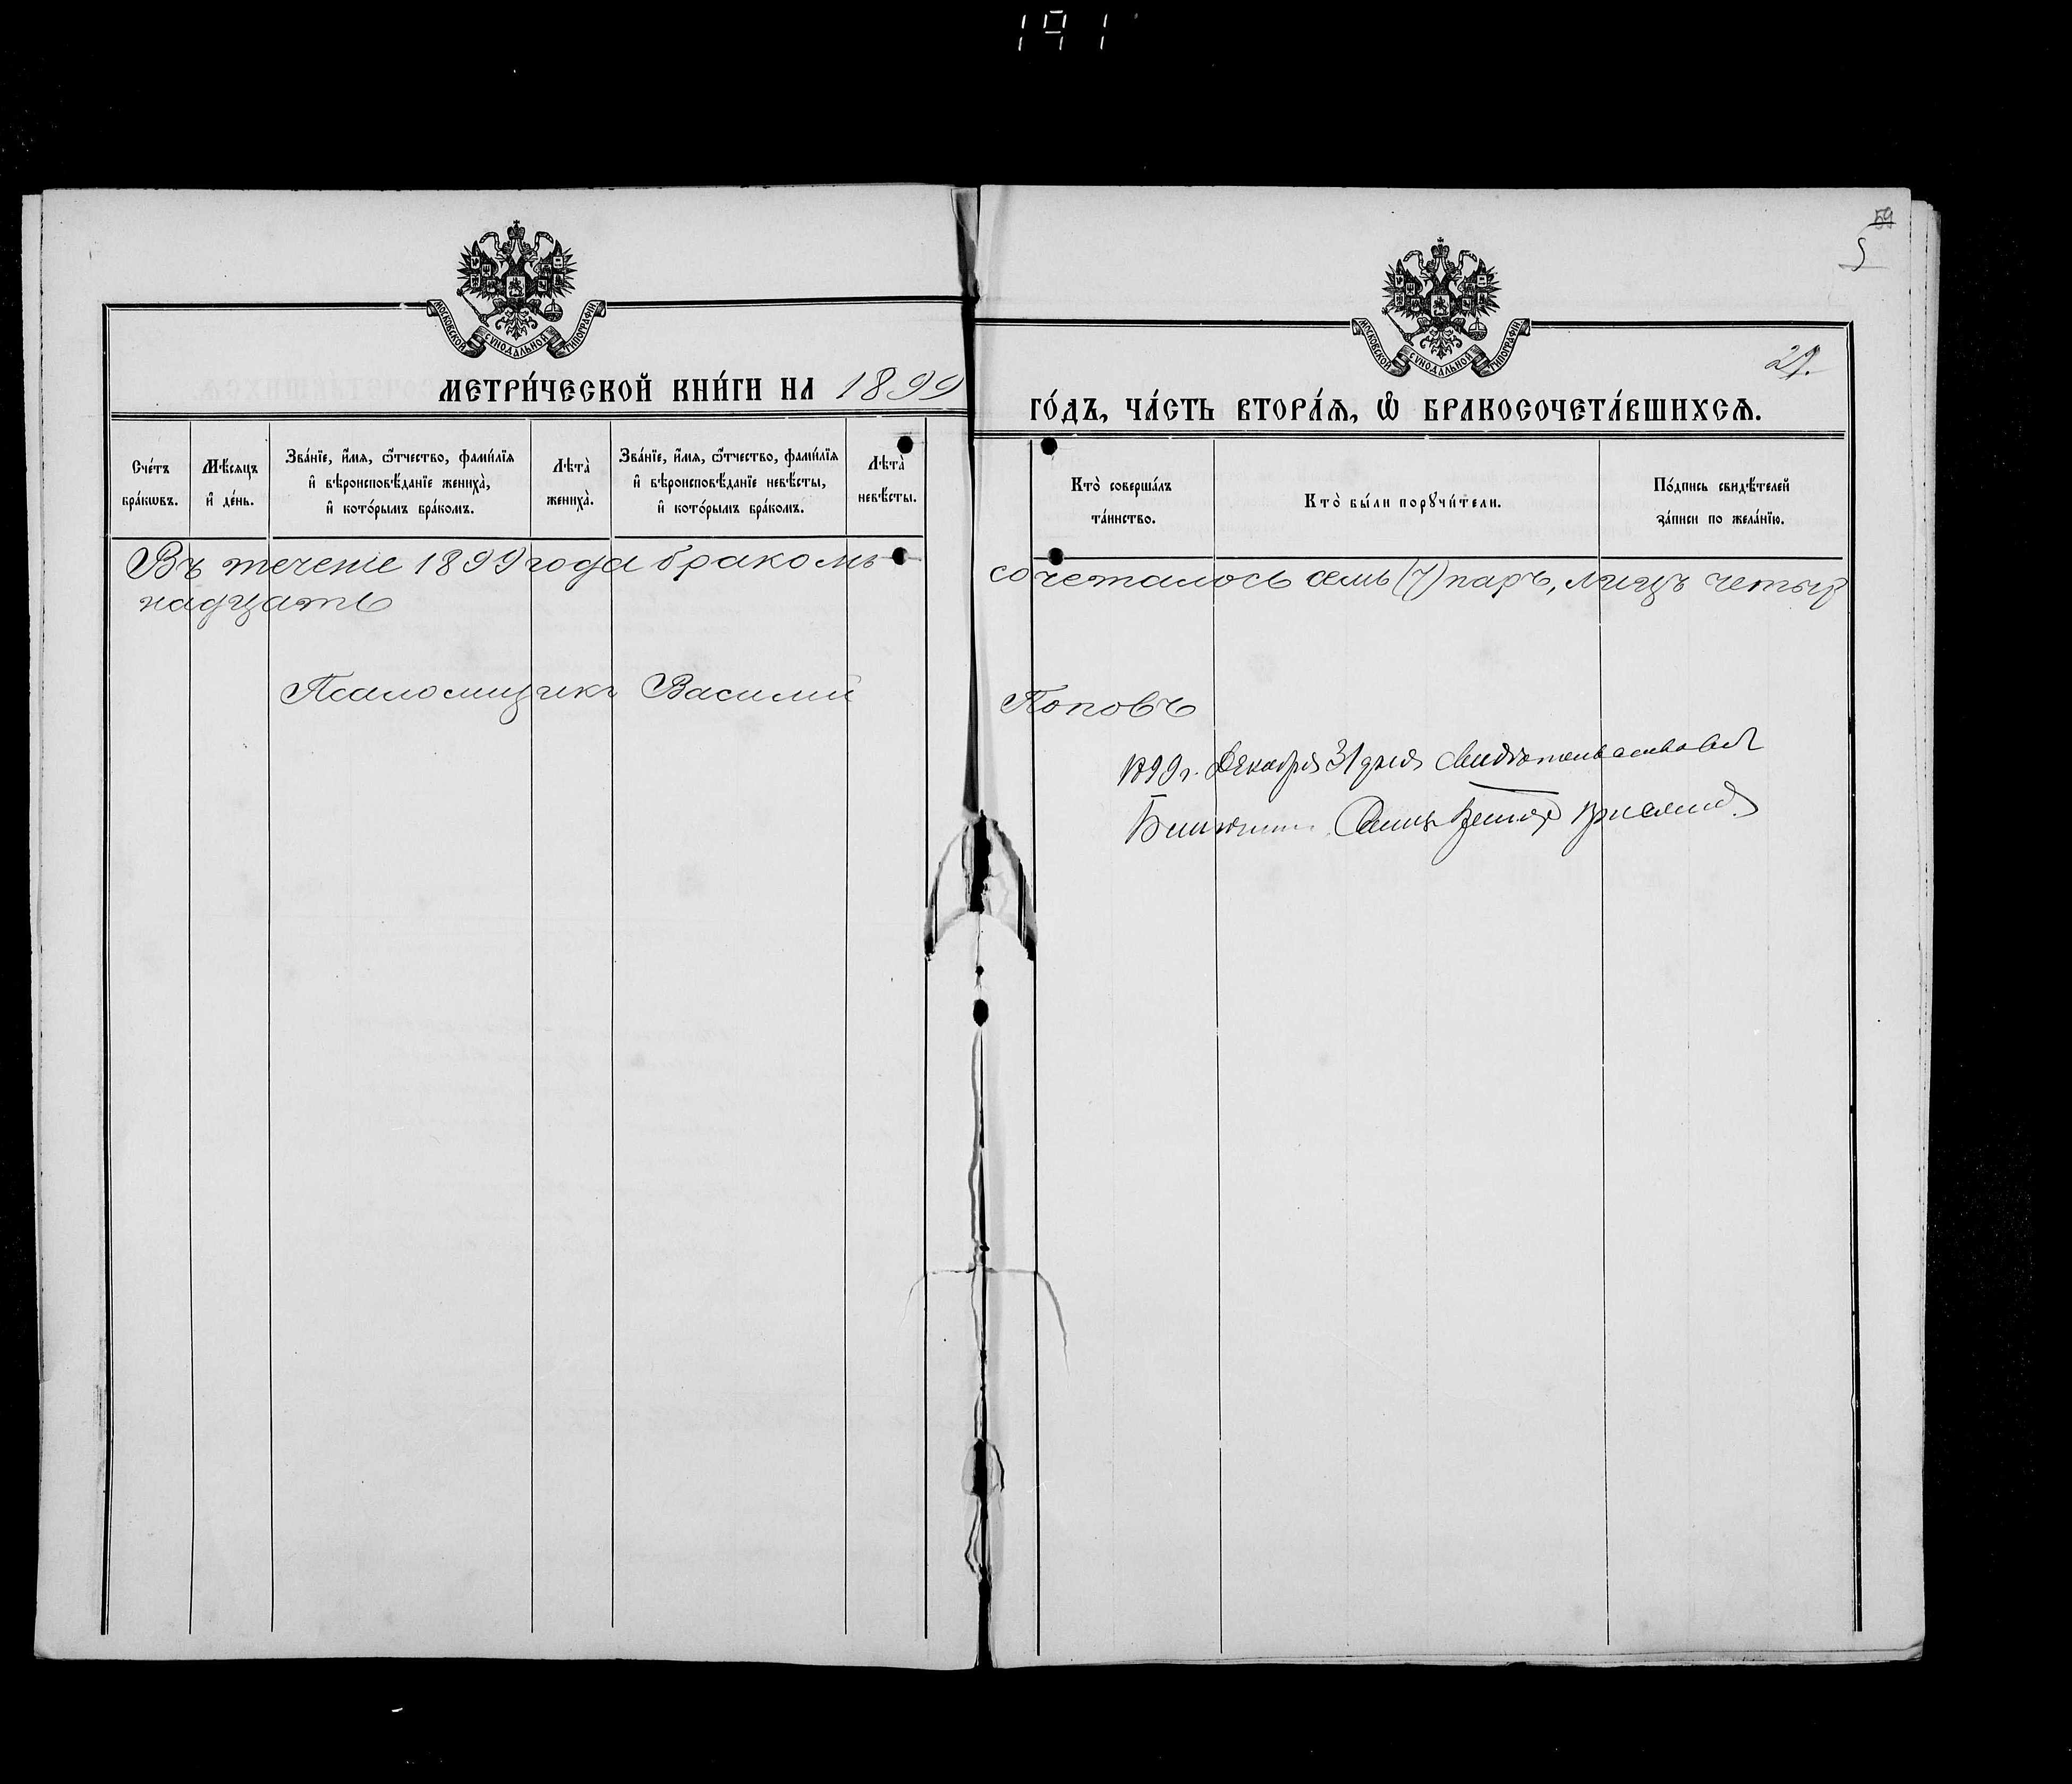 191
59
5
МОСКОВСКОЙ СѴНОДАЛЬНОЙ ТИПОГРАФІИ.
МОСКОВСКОЙ СѴНОДАЛЬНОЙ ТИПОГРАФІИ.
29.
МЕТРИ́ЧЕСКОЙ КНИ́ГИ НА 1899
ГО́ДЪ, ЧА́СТЬ ВТОРА́Ѧ, Ѡ҆ БРАКОСОЧЕТА́ВШИХСѦ.
Сче́тъ бра́кѡвъ.
Мѣ́сѧцъ и҆ де́нь.
Зва́нїе, и҆́мѧ, ѻ҆́тчество, фами́лїѧ и҆ вѣроисповѣ́данїе жениха̀, и҆ кото́рымъ бра́комъ.
Лѣта̀ жениха̀.
Зва́нїе, и҆́мѧ, ѻ҆́тчество, фами́лїѧ и҆ вѣроисповѣ́данїе невѣ́сты, и҆ кото́рымъ бра́комъ.
Лѣта̀ невѣ́сты.
Кто̀ соверша́лъ та́инство.
Кто̀ бы́ли порꙋчи́тели.
По́дпись свидѣ́телей за́писи по жела́нїю.
Въ теченіе 1899 года бракомъ сочеталось семь (7) паръ, лицъ четыр
надцать
Псаломщикъ Василій Поповъ
1899 г. Декабря 31 дня Свидѣтельствовалъ